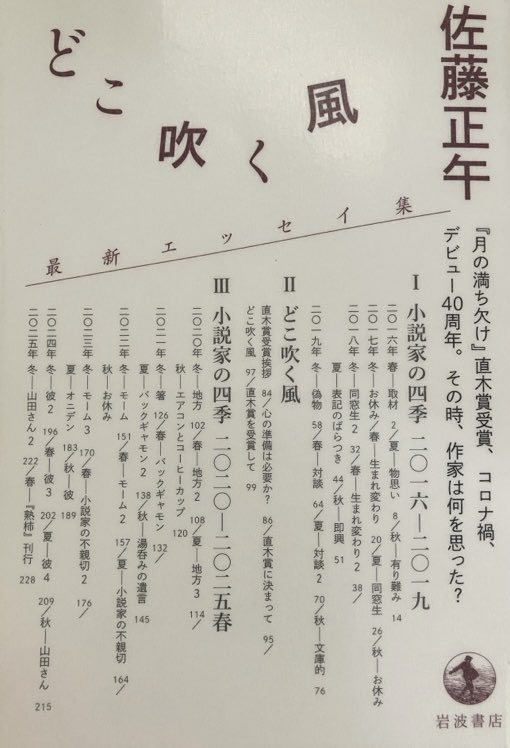 佐藤正午
どこ吹く風
最新エッセイ集
『月の満ち欠け』直木賞受賞、コロナ禍、
デビュー40周年。その時、作家は何を思った？
Ⅰ 小説家の四季 二〇一六―二〇一九
二〇一六年 春―取材 2／夏―物思い 8／秋―有り難み 14
二〇一七年 冬―お休み／春―生まれ変わり 20／夏―同窓生 26／秋―お休み
二〇一八年 冬―同窓生2 32／春―生まれ変わり2 38／
夏―表記のばらつき 44／秋―即興 51
二〇一九年 冬―偽物 58／春―対談 64／夏―対談2 70／秋―文庫的 76
Ⅱ どこ吹く風
直木賞受賞挨拶 84／心の準備は必要か？ 86／直木賞に決まって 95／
どこ吹く風 97／直木賞を受賞して 99
Ⅲ 小説家の四季 二〇二〇―二〇二五春
二〇二〇年 冬―地方 102／春―地方2 108／夏―地方3 114／
秋―エアコンとコーヒーカップ 120
二〇二一年 冬―箸 126／春―バックギャモン 132／
夏―バックギャモン2 138／秋―湯呑みの遺言 145
二〇二二年 冬―モーム 151／春―モーム2 157／夏―小説家の不親切 164／
秋―お休み
二〇二三年 冬―モーム3 170／春―小説家の不親切2 176／
夏―オニデン 183／秋―彼 189
二〇二四年 冬―彼2 196／春―彼3 202／夏―彼4 209／秋―山田さん 215
二〇二五年 冬―山田さん2 222／春―『熟柿』刊行 228
岩波書店